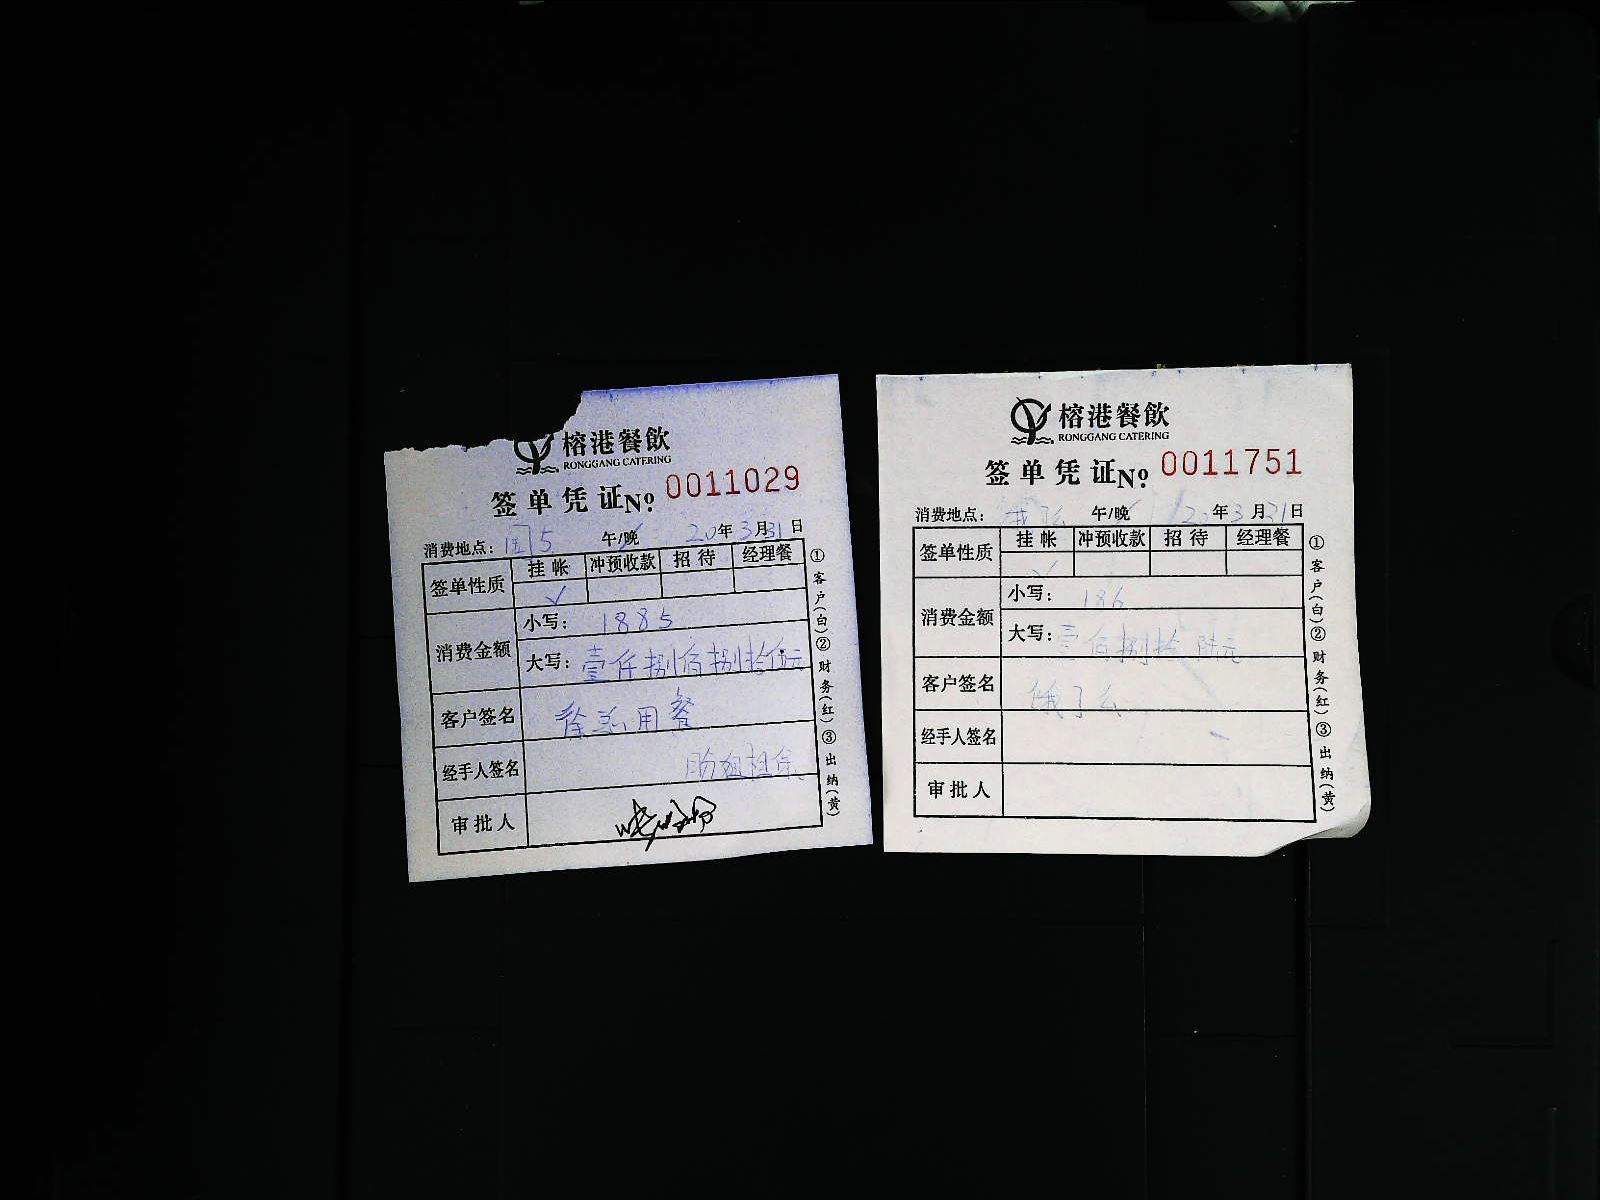 榕港餐飲
RONGGANG CATERING
签单凭证No: 0011029
消费地点: 5 午/晚 20年3月31日
签单性质 挂帐 冲预收款 招待 经理餐
✓
消费金额 小写: 1885
大写: 壹仟捌佰捌拾伍元
客户签名 用餐
经手人签名
审批人
①客户(白)②财务(红)③出纳(黄)
榕港餐飲
RONGGANG CATERING
签单凭证No: 0011751
消费地点: 午/晚 年3月31日
签单性质 挂帐 冲预收款 招待 经理餐
✓
消费金额 小写: 186
大写: 壹佰捌拾陆元
客户签名 饿了么
经手人签名
审批人
①客户(白)②财务(红)③出纳(黄)